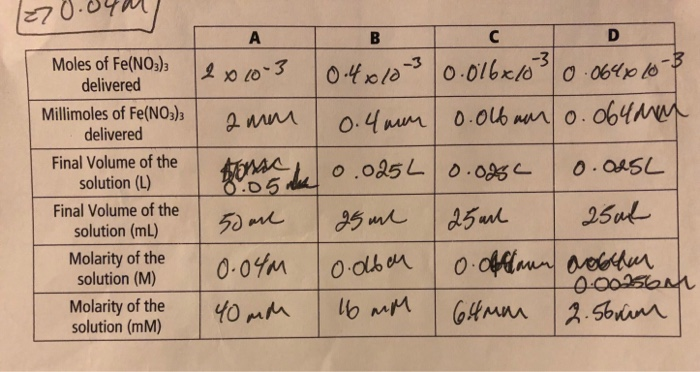 => 0.04M
A B C D
Moles of Fe(NO₃)₃ delivered 2 x 10⁻³ 0.4x10⁻³ 0.016x10⁻³ 0.064x10⁻³
Millimoles of Fe(NO₃)₃ delivered 2 mm 0.4 mm 0.016 mm 0.064 mM
Final Volume of the solution (L) 0.05 0.025L 0.025L 0.025L
Final Volume of the solution (mL) 50 mL 25 mL 25 mL 25 mL
Molarity of the solution (M) 0.04M 0.016M 0.00256M
Molarity of the solution (mM) 40 mM 16 mM 64 mM 2.56 mM